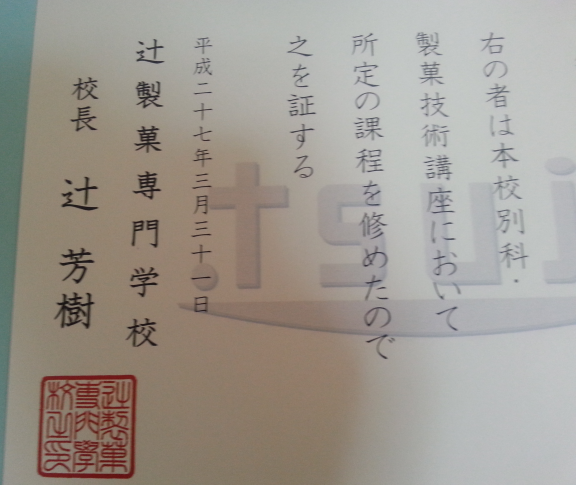 右の者は本校別科・
製菓技術講座において
所定の課程を修めたので
之を証する
平成二十七年三月三十一日
辻製菓専門学校
校長 辻 芳樹
辻製菓
専門學
校之印
tsuji